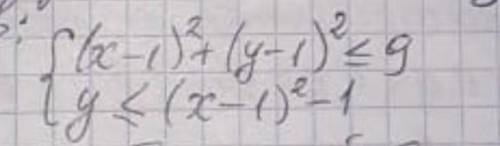 {(x-1)²+(y-1)²≤9
y≤(x-1)²-1